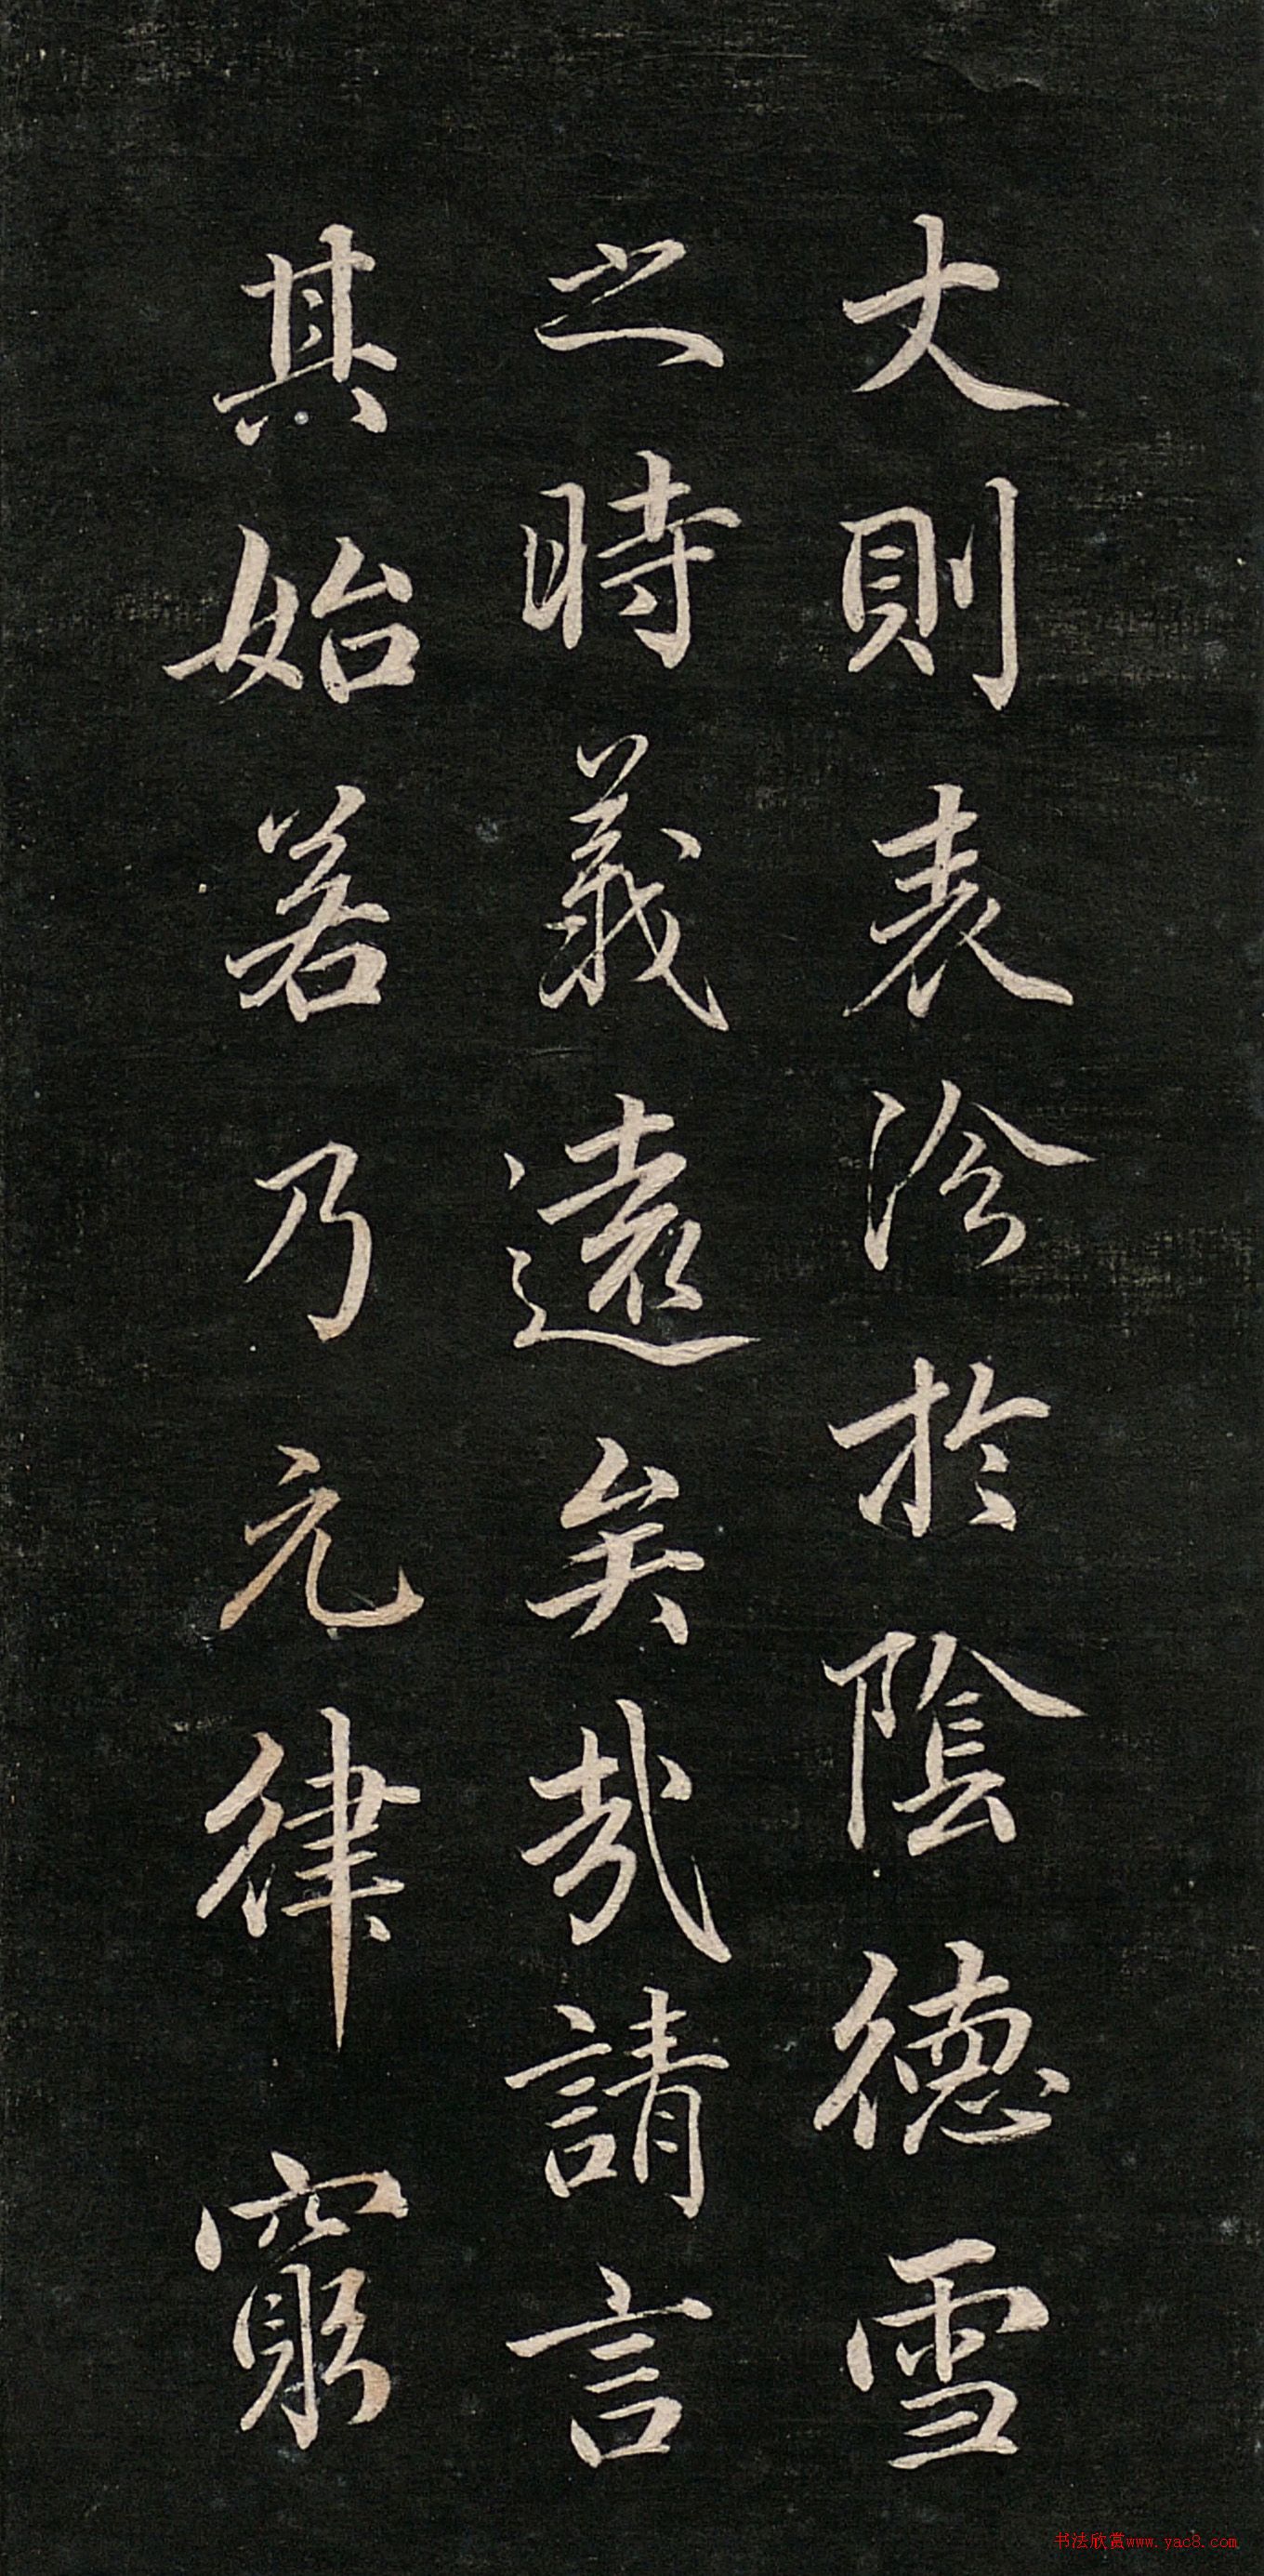 丈則表沴於陰德雪
之時義遠矣哉請言
其始若乃元律窮
书法欣赏www.yac8.com